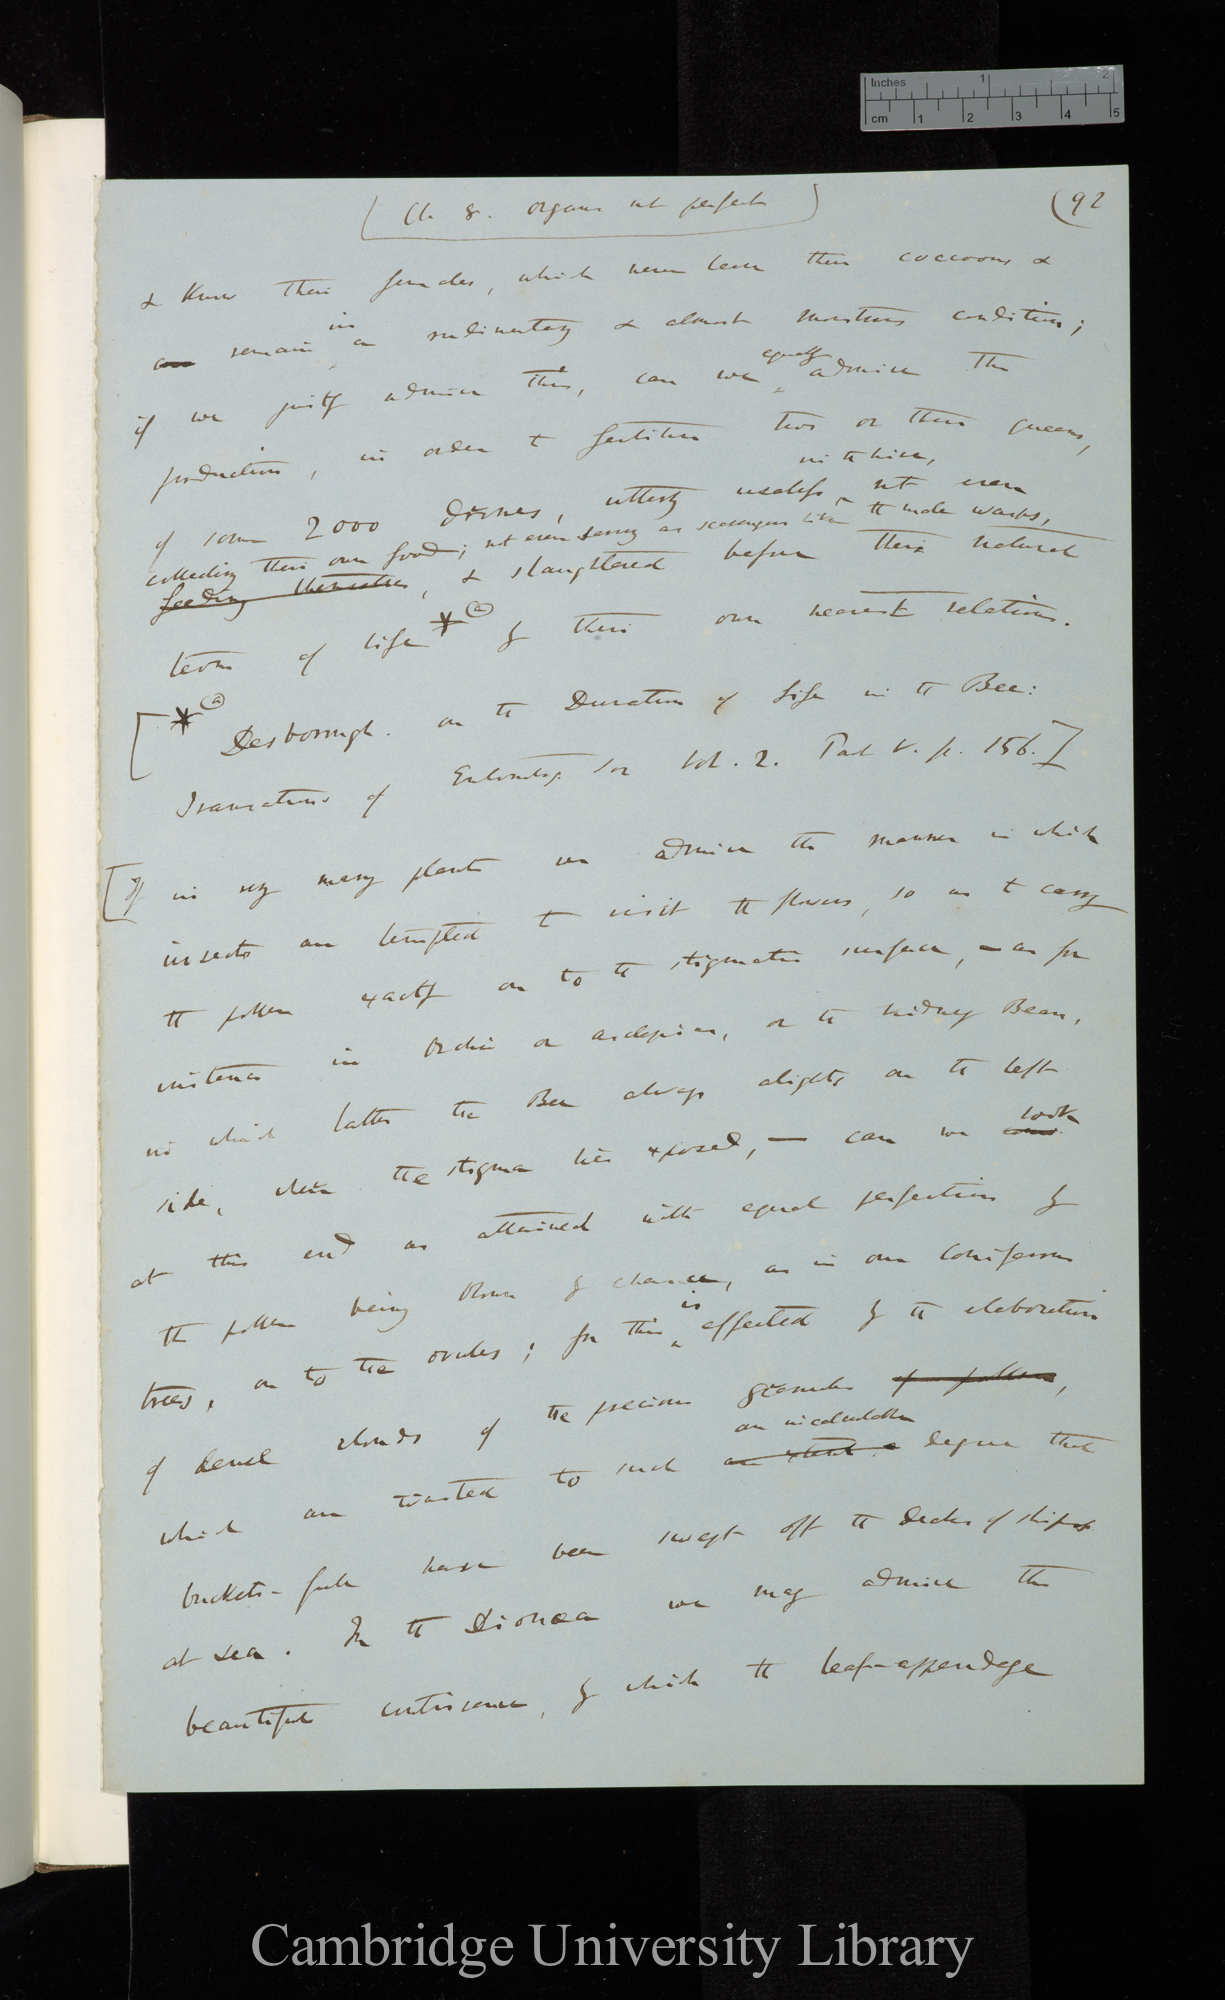 Inches 1 2
cm 1 2 3 4 5
(Ch 8. organs not perfect)
(92
& know their females, which never leave their coccoons &
are remain in a rudimentary & almost monstrous condition;
if we justly admire this, can we equally admire the
production, in order to fertilise two or three queens,
of some 2000 drones, utterly useless in the hive, not even
collecting their own food; not even serving as scavengers like the male wasps,
feeding themselves, & slaughtered before their natural
term of life *(a) by their own nearest relations.
[*(a) Desborough. on the Duration of Life in the Bee:
Transactions of Entomolog. Soc Vol. 2. Part V. p. 156.]
[If in very many plants we admire the manner in which
insects are tempted to visit the flowers, so as to carry
the pollen exactly on to the stigmatic surface, — as for
instance in Orchis or asclepias, or the Kidney Bean,
in which latter the Bee always alights on the left
side, where the stigma lies exposed, — can we look
at this end as attained with equal perfection by
the pollen being blown by chance, as in our Coniferous
trees, on to the ovules; for this is effected by the elaboration
of dense clouds of the precious granules of pollen,
which are wasted to such an incalculable an extent a degree that
buckets-full have been swept off the decks of ships
at sea. In the Dionœa we may admire the
beautiful contrivance, by which the leaf-appendage
Cambridge University Library